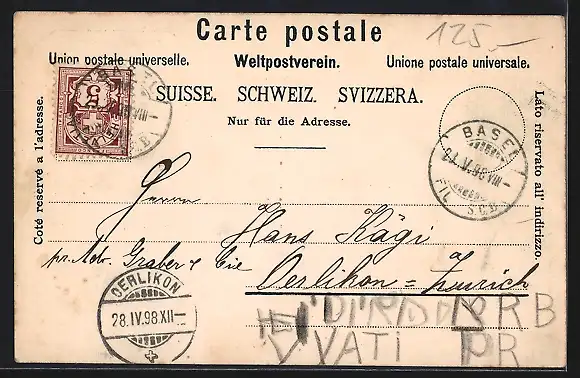 Carte postale
125.-
Union postale universelle. Weltpostverein. Unione postale universale.
SUISSE. SCHWEIZ. SVIZZERA.
Nur für die Adresse.
Coté reservé a l'adresse.
Lato riservato all' indirizzo.
5
BASEL
IV.98.VIII-
FIL S.C.B.
Herrn
Hans Kägi
pr. Adr. Graber & Cie
Oerlikon = Zürich
OERLIKON
28.IV.98.XII-
VATI PR